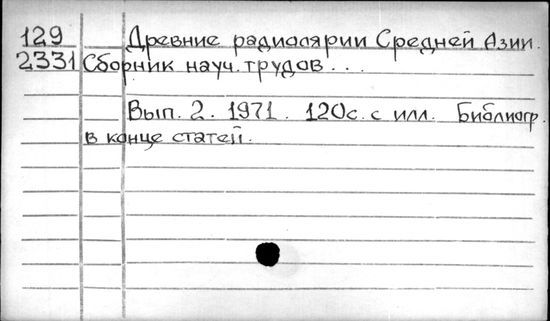 129 Древние радиолярии Средней Азии.
2331 Сборник науч. трудов...
Вып. 2. 1971. 120с. с илл. Библиогр.
в конце статей.